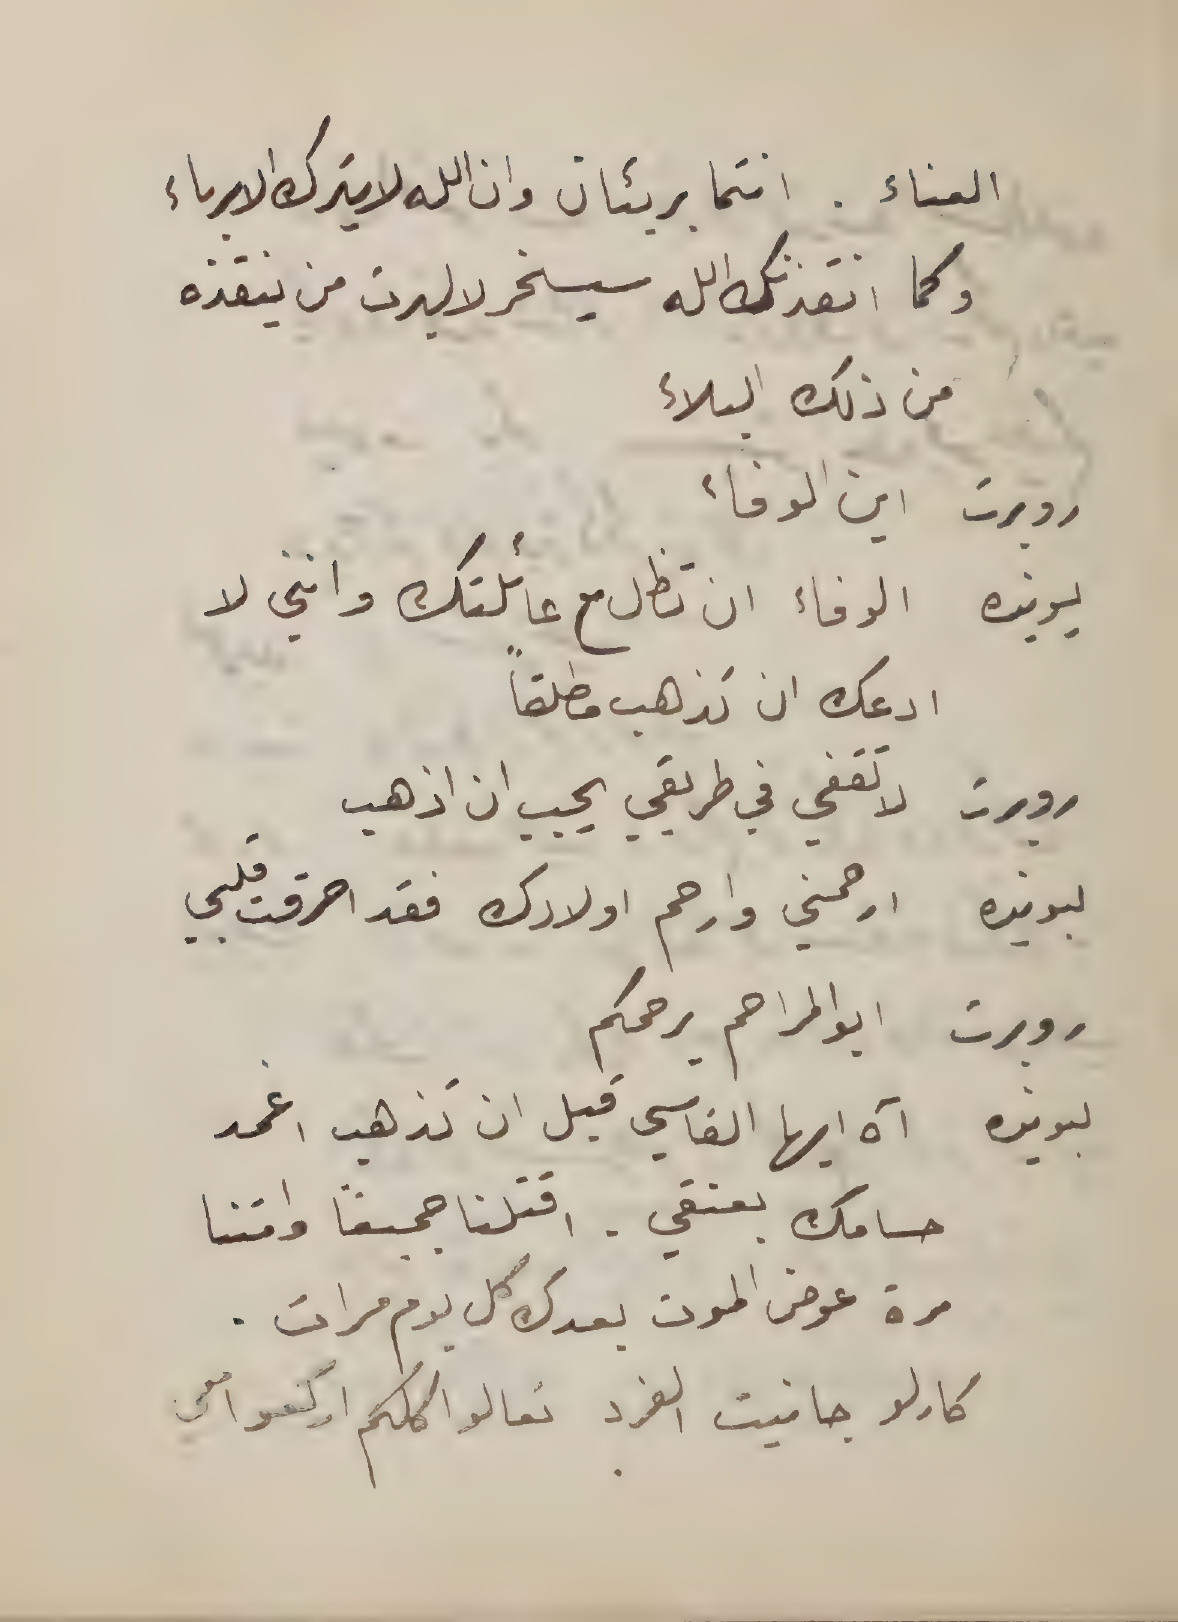 العناء . انتما بريئان وان الله لا يترك الابرياء
وكما انقذتك الله سيسخر لاليرت من ينقذه
من ذلك البلاء
روبرت اين الوفاء
ليونيده الوفاء ان تظل مع عائلتك وانني لا
ادعك ان تذهب مطلقاً
روبرت لا تقفي في طريقي يجب ان اذهب
ليونيده ارحمني وارحم اولادك فقد احرقت قلبي
روبرت ابو المراحم يرحمكم
ليونيده آه ايها القاسي قبل ان تذهب اغمد
حسامك بعنقي . اقتلنا جميعنا وامتنا
مرة عوض الموت بعدك كل يوم مرات .
كارلو جانيت الفرد تعالوا كلكم اركعوا معي